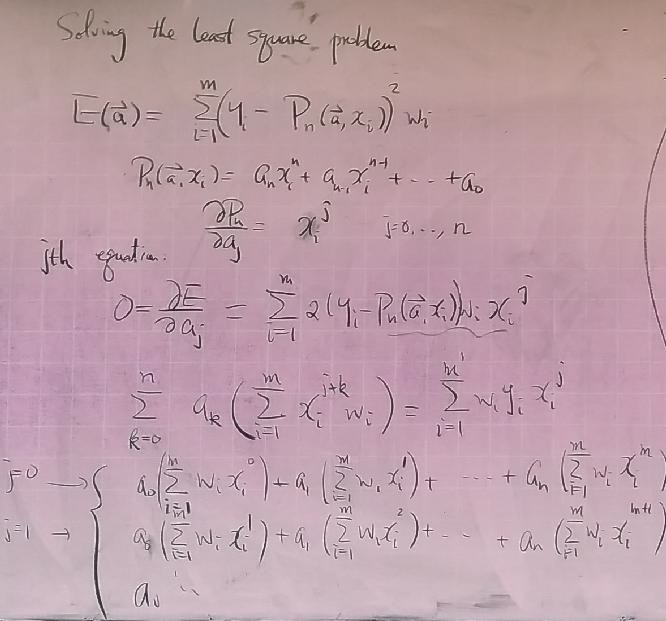 Solving the least square problem
E(a⃗) = ∑_{i=1}^{m} (y_i - P_n(a⃗, x_i))² w_i
P_n(a⃗, x_i) = a_n x_i^n + a_{n-1} x_i^{n-1} + ... + a_0
∂P_n/∂a_j = x_i^j j=0, ..., n
jth equation:
0 = ∂E/∂a_j = ∑_{i=1}^{m} 2(y_i - P_n(a⃗, x_i)) w_i x_i^j
∑_{k=0}^{n} a_k (∑_{i=1}^{m} x_i^{j+k} w_i) = ∑_{i=1}^{m} w_i y_i x_i^j
j=0 → { a_0 (∑_{i=1}^{m} w_i x_i^0) + a_1 (∑_{i=1}^{m} w_i x_i^1) + ... + a_n (∑_{i=1}^{m} w_i x_i^m)
j=1 → a_0 (∑_{i=1}^{m} w_i x_i^1) + a_1 (∑_{i=1}^{m} w_i x_i^2) + ... + a_n (∑_{i=1}^{m} w_i x_i^{m+1})
a_0 ...